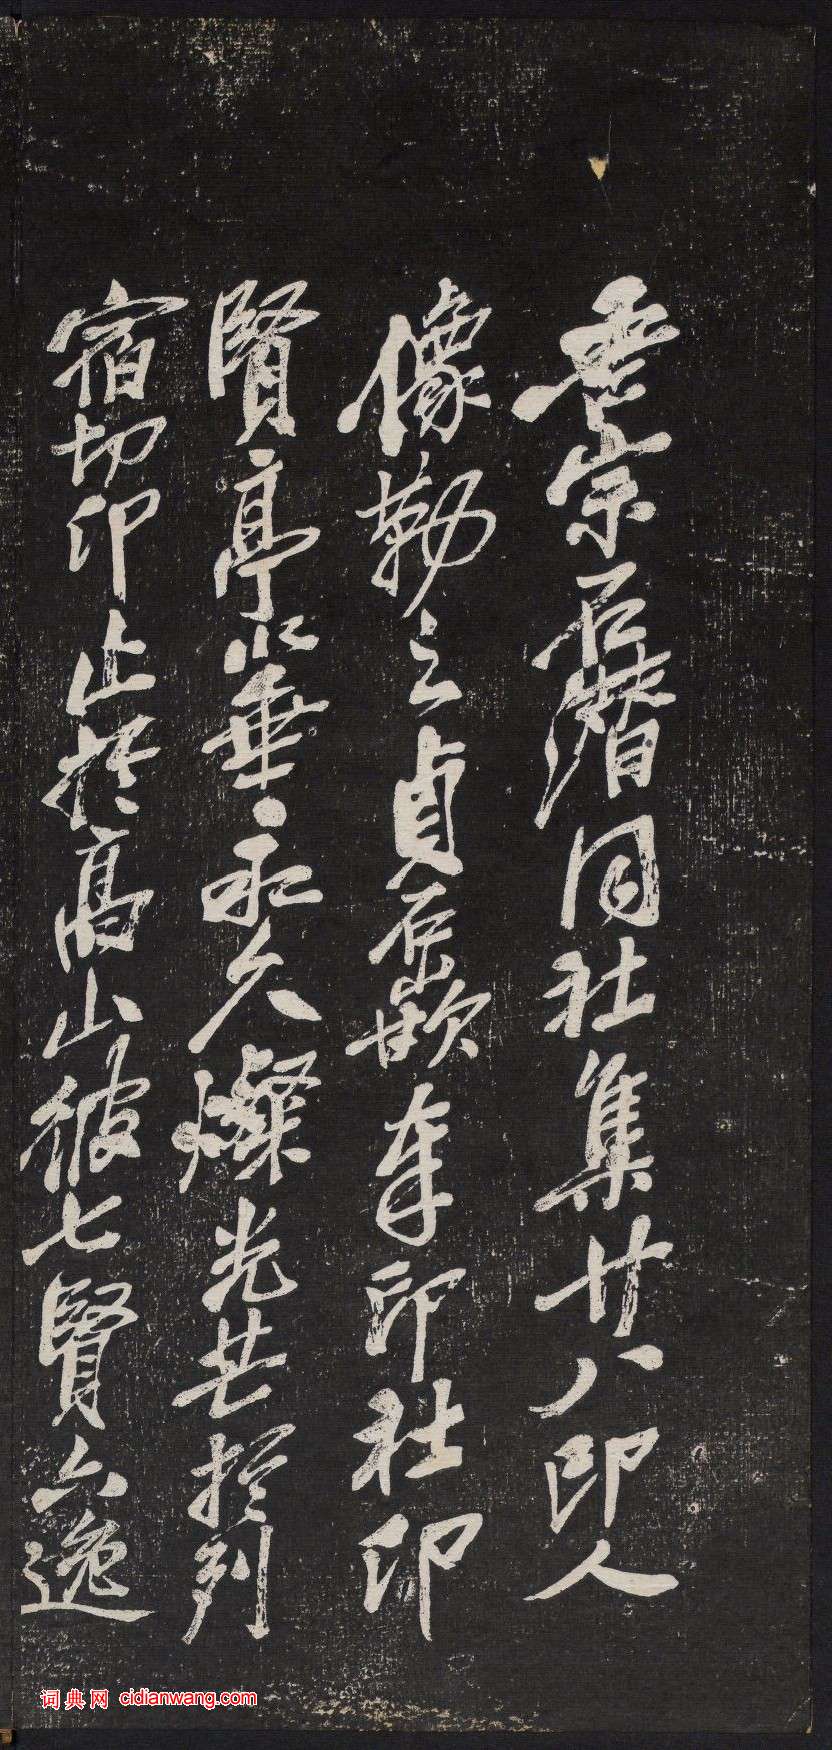 吾宗石潛同社集廿八印人
像勒之貞石嵌本印社印
賢亭以垂永久燦光芒於列
宿切印止於高山彼七賢六逸
词典网 cidianwang.com